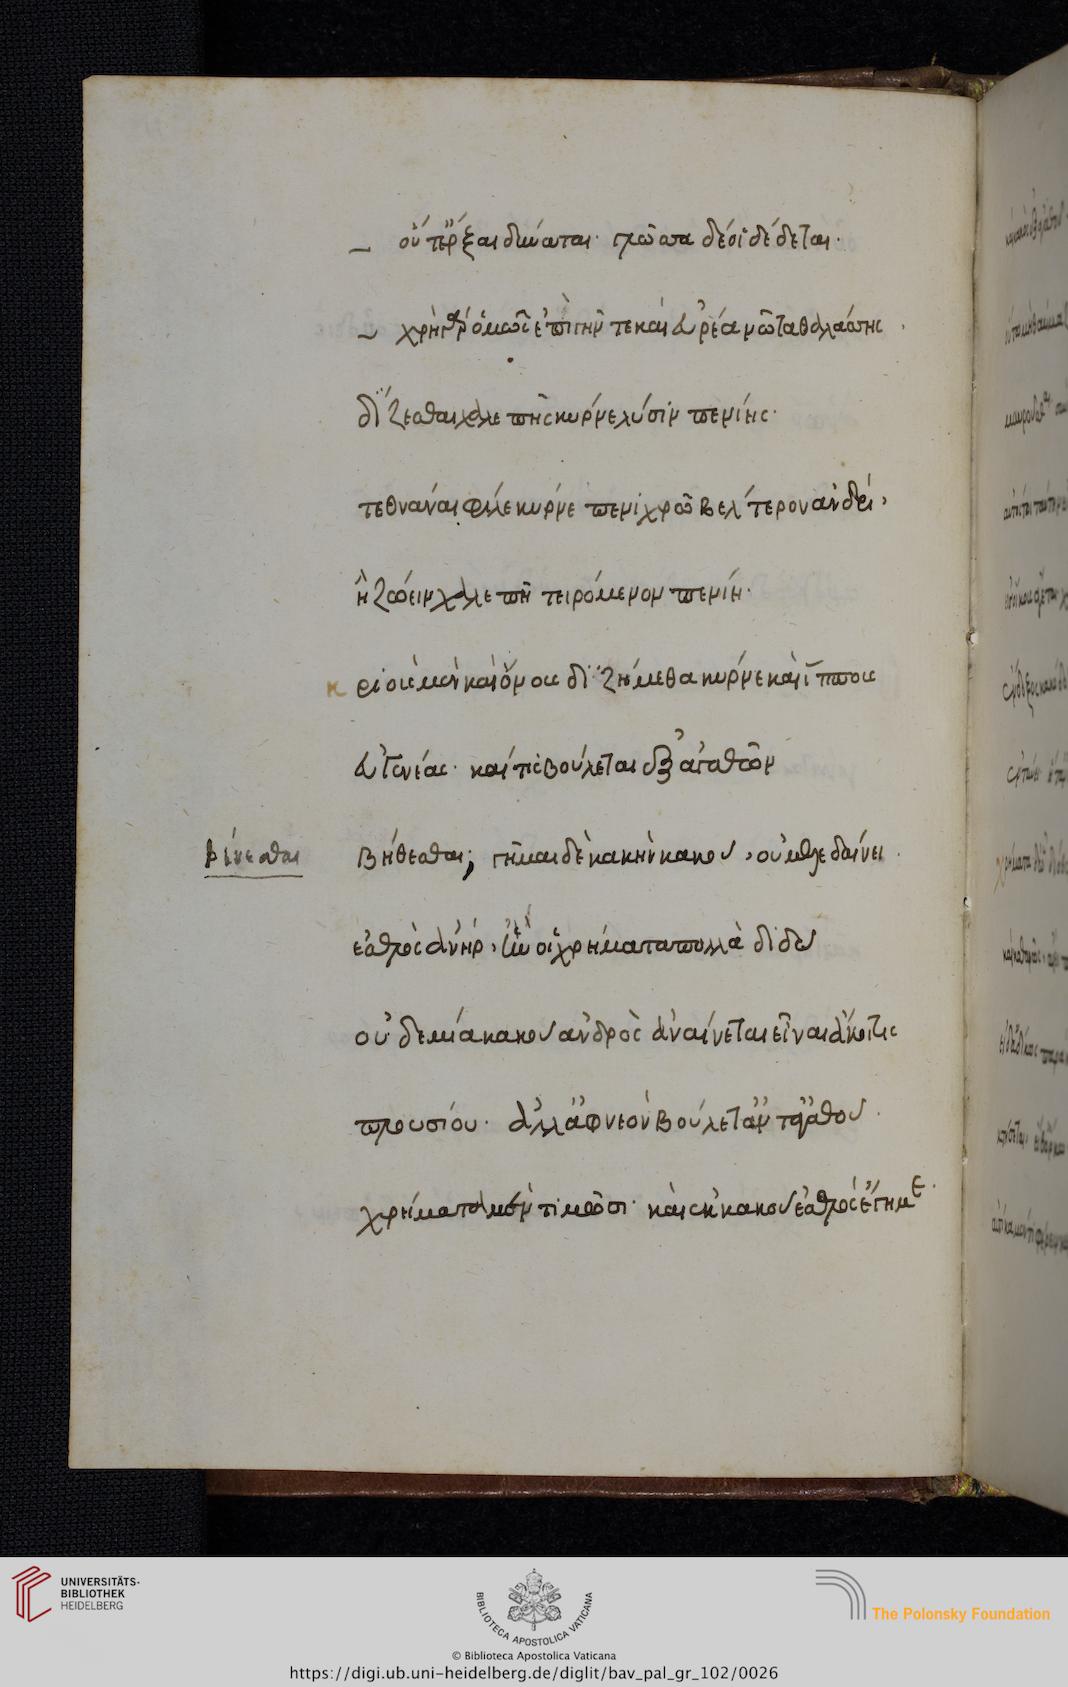 οὔθ' ἔρξαι δύναται· γλῶσσα δέ οἱ δέδεται·
χρὴ γὰρ ὁμῶς ἐπὶ γῆν τε καὶ εὐρέα νῶτα θαλάσσης
δίζεσθαι χαλεπῆς κύρνε λύσιν πενίης·
τεθνάναι φίλε κύρνε πενιχρῶ βέλτερον ἀνδρί,
ἢ ζώειν χαλεπῆ τειρόμενον πενίη·
κριοὺς μὲν καὶ ὄνους διζήμεθα κύρνε καὶ ἵππους
εὐγενέας· καί τις βούλεται ἐξ ἀγαθῶν
βίνεσθαι
βήσεσθαι; γῆμαι δὲ κακὴν κακοῦ, οὐ μελεδαίνει
ἐσθλὸς ἀνὴρ, ἤν οἱ χρήματα πολλὰ διδῶ
οὐδεμία κακοῦ ἀνδρὸς ἀναίνεται εἶναι ἄκοιτις
πλουσίου· ἀλλ' ἀφνεὸν βούλεται ἀντ' ἀγαθοῦ·
χρήματα μὲν τιμῶσι· καὶ ἐκ κακοῦ ἐσθλὸς ἔγημε·
UNIVERSITÄTS-
BIBLIOTHEK
HEIDELBERG
BIBLIOTECA APOSTOLICA VATICANA
The Polonsky Foundation
© Biblioteca Apostolica Vaticana
https://digi.ub.uni-heidelberg.de/diglit/bav_pal_gr_102/0026